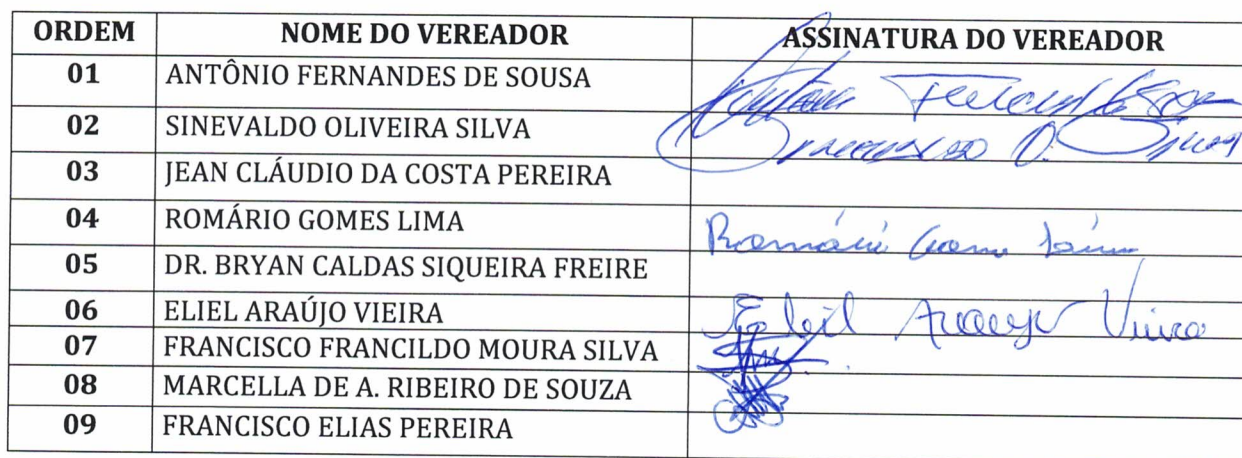 ORDEM NOME DO VEREADOR ASSINATURA DO VEREADOR
01 ANTÔNIO FERNANDES DE SOUSA Antônio
02 SINEVALDO OLIVEIRA SILVA O. Silva
03 JEAN CLÁUDIO DA COSTA PEREIRA
04 ROMÁRIO GOMES LIMA Romário Gomes Lima
05 DR. BRYAN CALDAS SIQUEIRA FREIRE
06 ELIEL ARAÚJO VIEIRA Eliel Araujo Vieira
07 FRANCISCO FRANCILDO MOURA SILVA
08 MARCELLA DE A. RIBEIRO DE SOUZA
09 FRANCISCO ELIAS PEREIRA